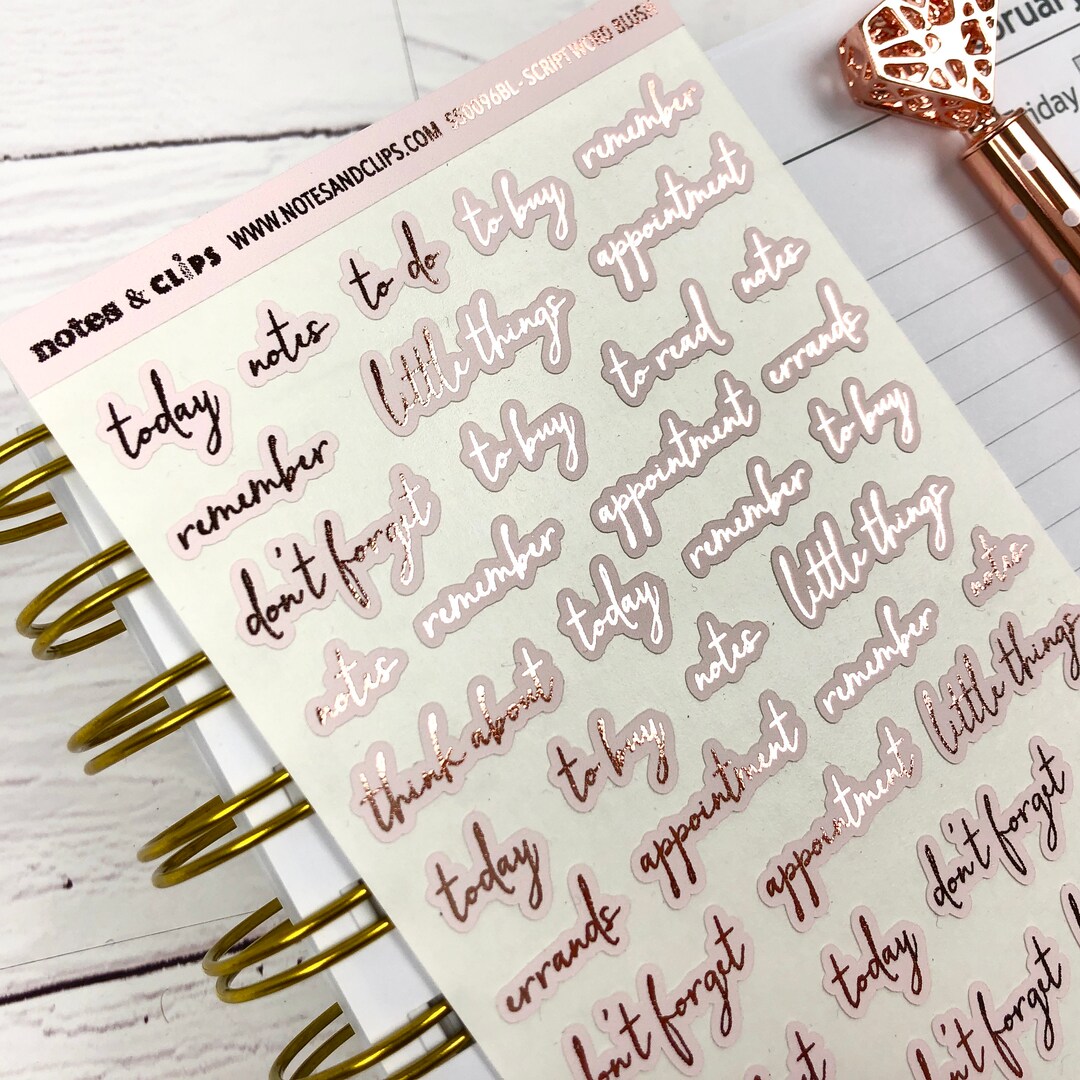 notes & clips WWW.NOTESANDCLIPS.COM SS0096BL - SCRIPT WORD BLUSH
today
notes
to do
to buy
remember
remember
little things
appointment
don't forget
to buy
to read
notes
notes
remember
appointment
errands
think about
today
remember
to buy
today
to buy
notes
little things
errands
appointment
remember
notes
don't forget
appointment
little things
today
don't forget
don't forget